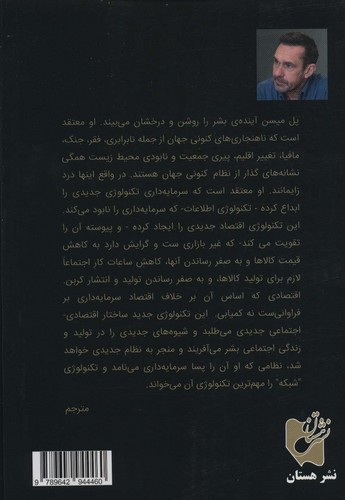 پل میسن آینده‌ی بشر را روشن و درخشان می‌بیند. او معتقد
است که ناهنجاری‌های کنونی جهان از جمله نابرابری، فقر، جنگ،
مافیا، تغییر اقلیم، پیری جمعیت و نابودی محیط زیست همگی
نشانه‌های گذار از نظام کنونی جهان هستند. در واقع اینها درد
زایمانند. او معتقد است که سرمایه‌داری تکنولوژی جدیدی را
ابداع کرده - تکنولوژی اطلاعات- که سرمایه‌داری را نابود می‌کند.
این تکنولوژی اقتصاد جدیدی را ایجاد کرده - و پیوسته آن را
تقویت می کند- که غیر بازاری ست و گرایش دارد به کاهش
قیمت کالاها و به صفر رساندن آنها، کاهش ساعات کار اجتماعاً
لازم برای تولید کالاها، و به صفر رساندن تولید و انتشار کربن.
اقتصادی که اساس آن بر خلاف اقتصاد سرمایه‌داری بر
فراوانی‌ست نه کمیابی. این تکنولوژی جدید ساختار اقتصادی-
اجتماعی جدیدی می‌طلبد و شیوه‌های جدیدی را در تولید و
زندگی اجتماعی بشر می‌آفریند و منجر به نظام جدیدی خواهد
شد، نظامی که او آن را پسا سرمایه‌داری می‌نامد و تکنولوژی
"شبکه" را مهم‌ترین تکنولوژی آن می‌خواند.
مترجم
نشر هستان
9 789642 944460